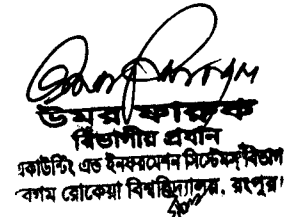 উমর ফারুক
বিভাগীয় প্রধান
একাউন্টিং এন্ড ইনফরমেশন সিস্টেমস্ বিভাগ
বেগম রোকেয়া বিশ্ববিদ্যালয়, রংপুর।